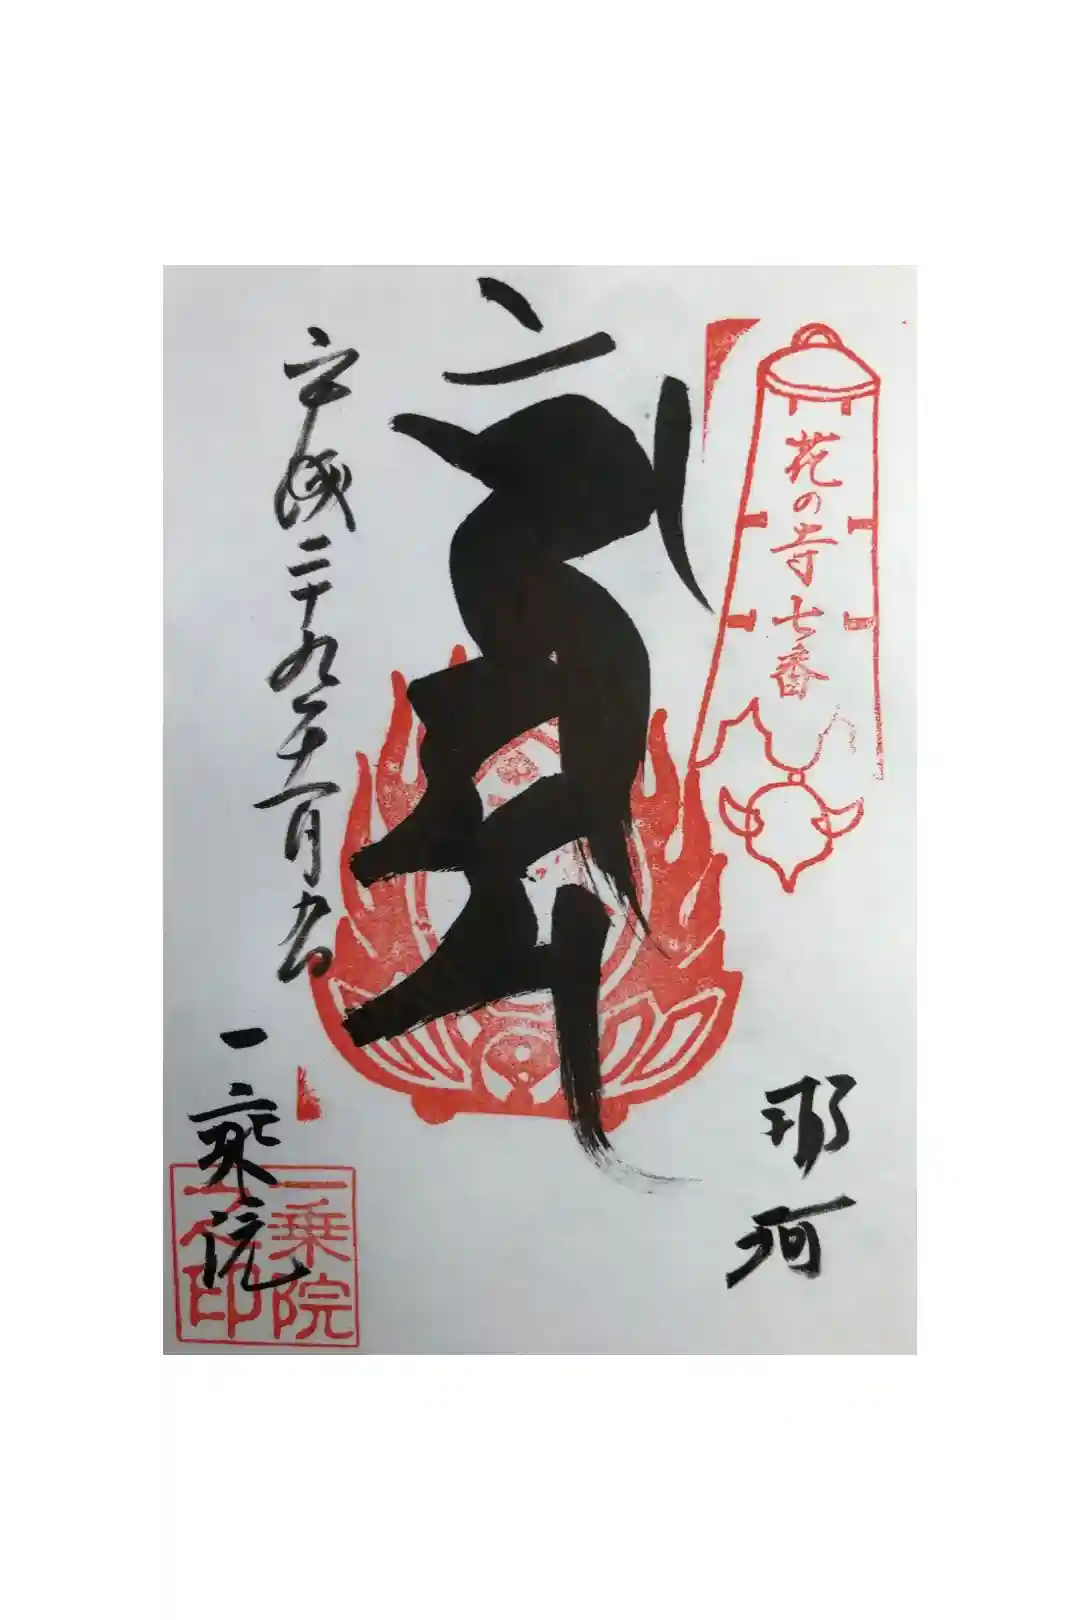 花の寺七番
那珂
平成二十九年十一月九日
一乗院
一乗院
印